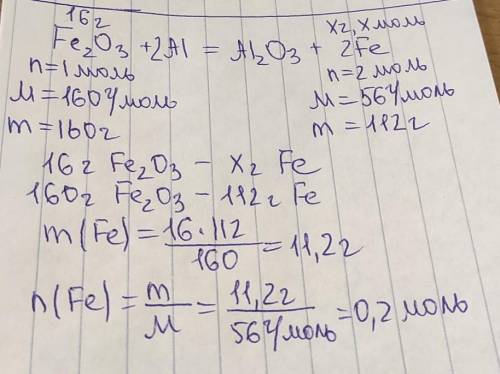 16г хг, х моль
Fe₂O₃ + 2Al = Al₂O₃ + 2Fe
n = 1 моль n = 2 моль
M = 160 г/моль M = 56 г/моль
m = 160г m = 112г
16г Fe₂O₃ – хг Fe
160г Fe₂O₃ – 112г Fe
m(Fe) = 16·112/160 = 11,2г
n(Fe) = m/M = 11,2г/56 г/моль = 0,2 моль